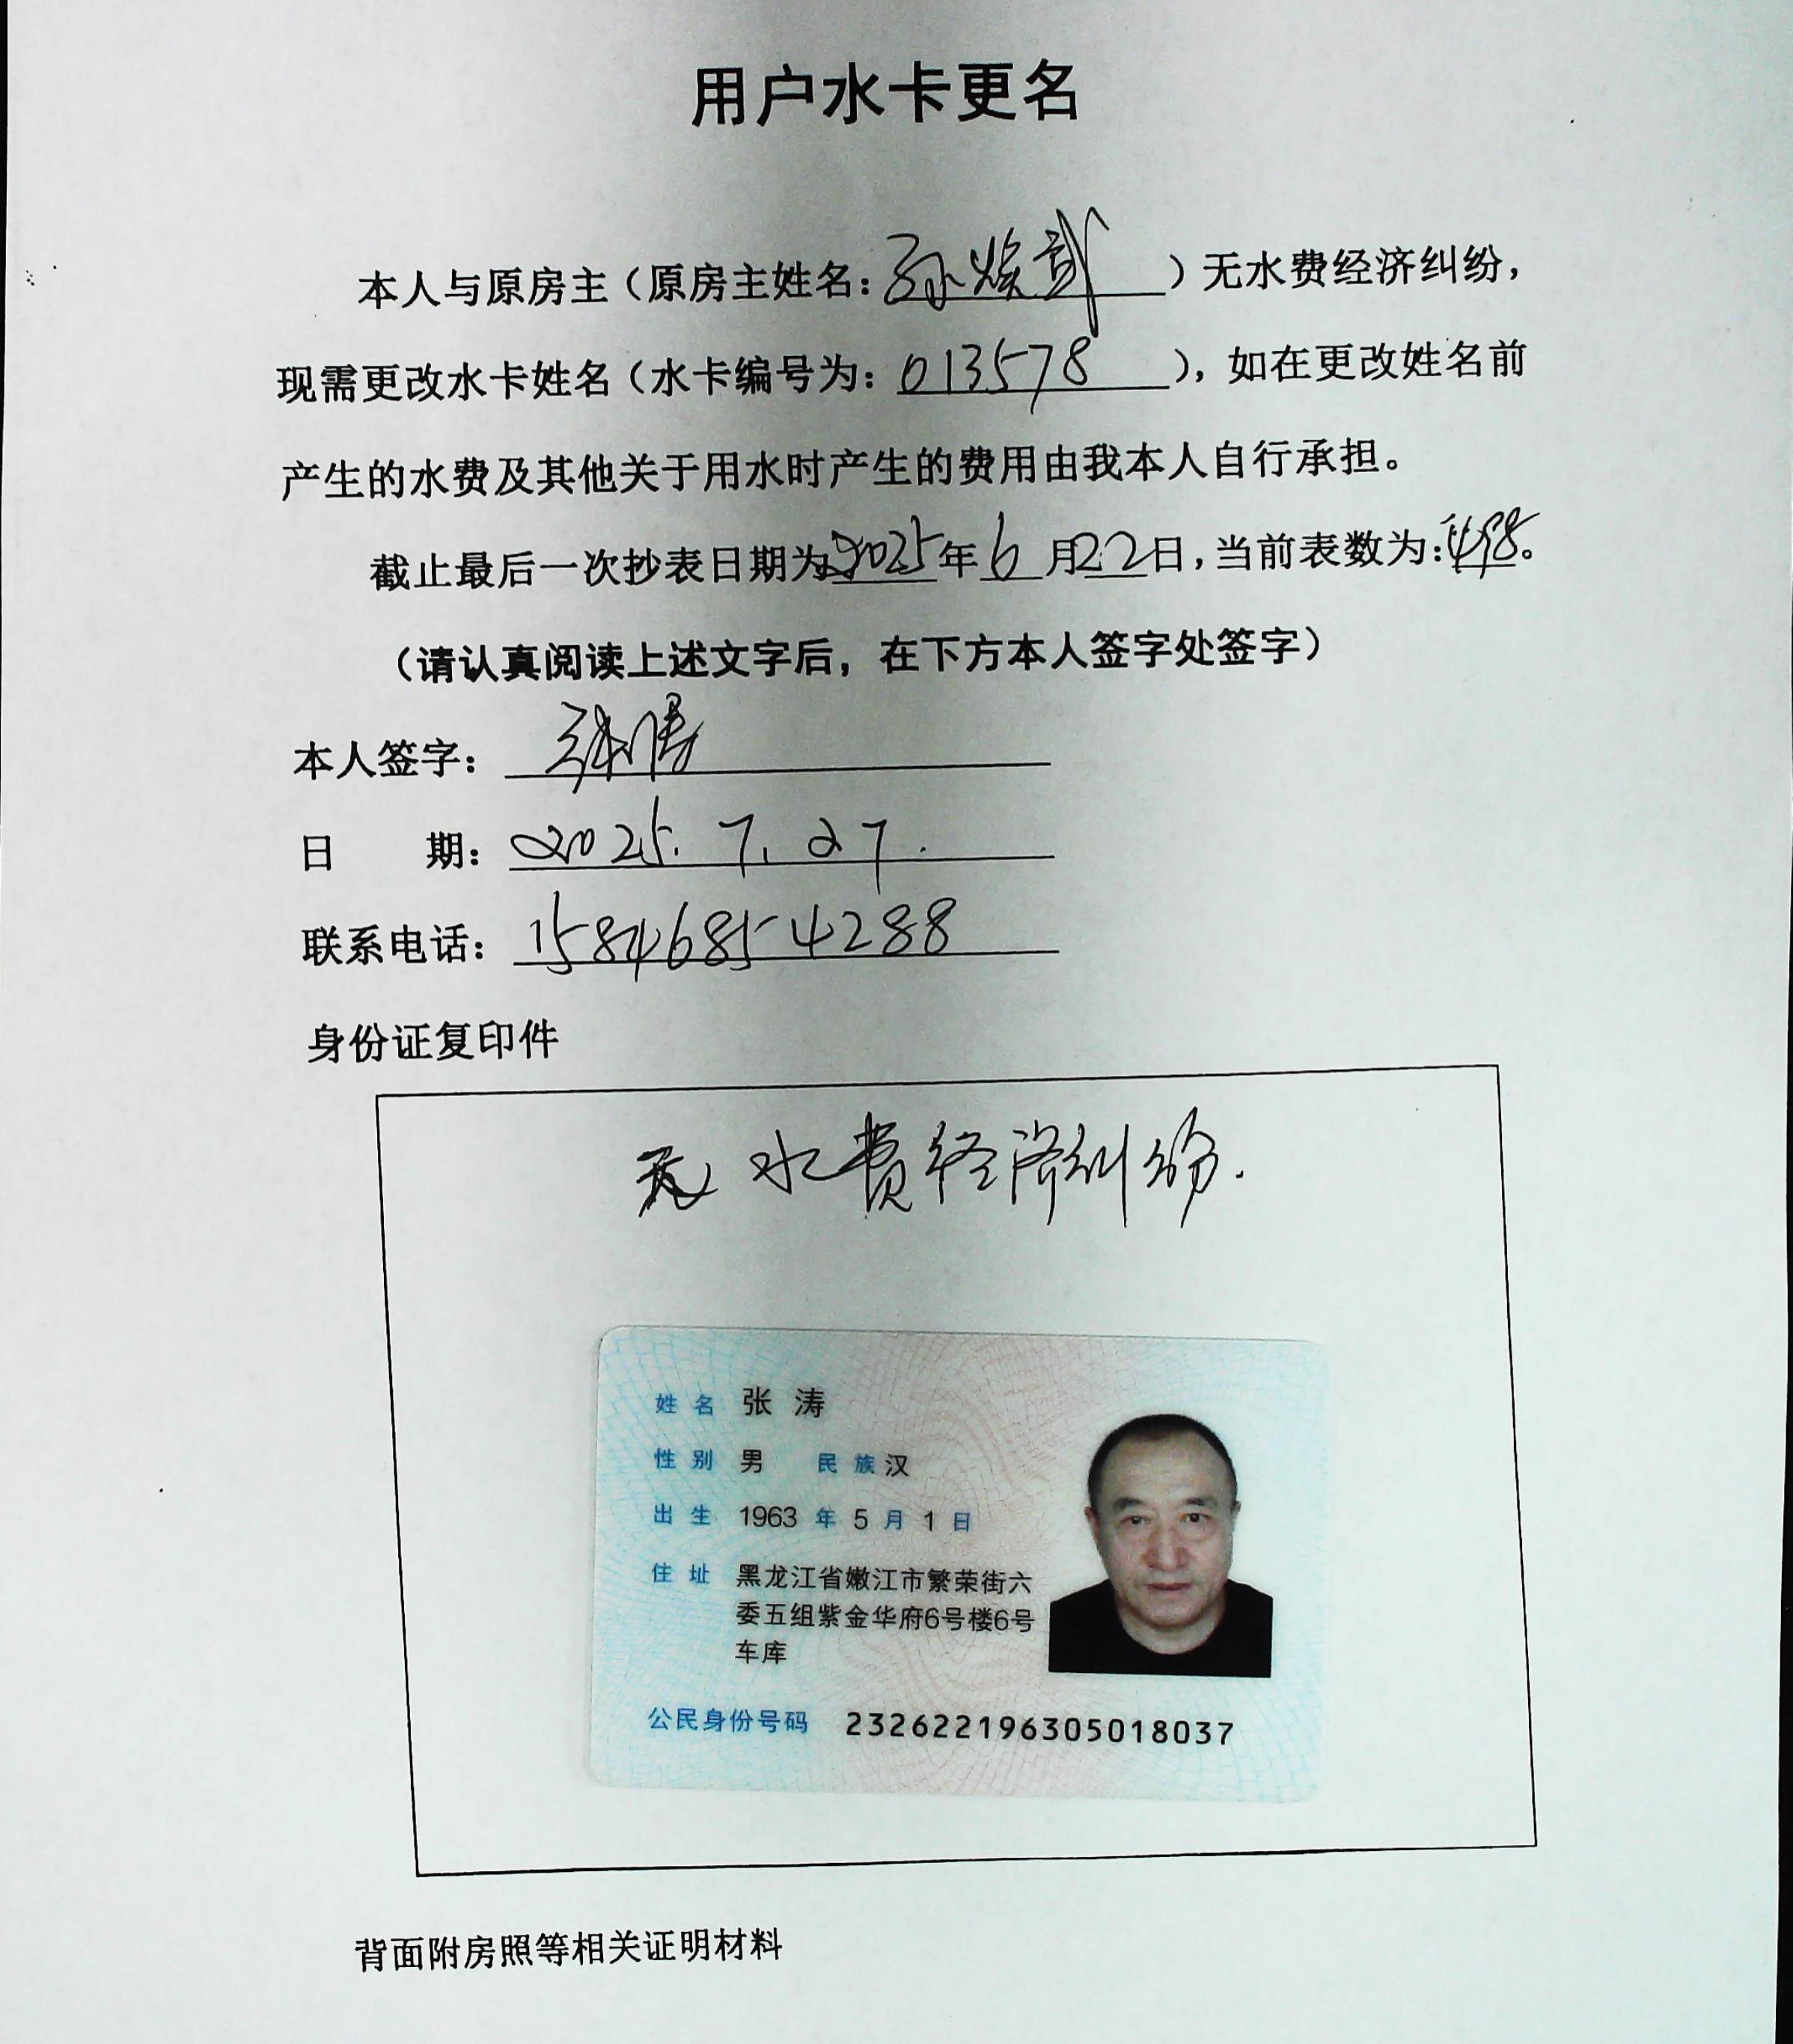 用户水卡更名
本人与原房主（原房主姓名：孙焕武）无水费经济纠纷，
现需更改水卡姓名（水卡编号为：013578），如在更改姓名前
产生的水费及其他关于用水时产生的费用由我本人自行承担。
截止最后一次抄表日期为2025年6月22日，当前表数为：498。
（请认真阅读上述文字后，在下方本人签字处签字）
本人签字：张涛
日 期：2025.7.27.
联系电话：15846854288
身份证复印件
无水费经济纠纷.
姓名 张涛
性别 男 民族 汉
出生 1963 年 5 月 1 日
住址 黑龙江省嫩江市繁荣街六
委五组紫金华府6号楼6号
车库
公民身份号码 232622196305018037
背面附房照等相关证明材料